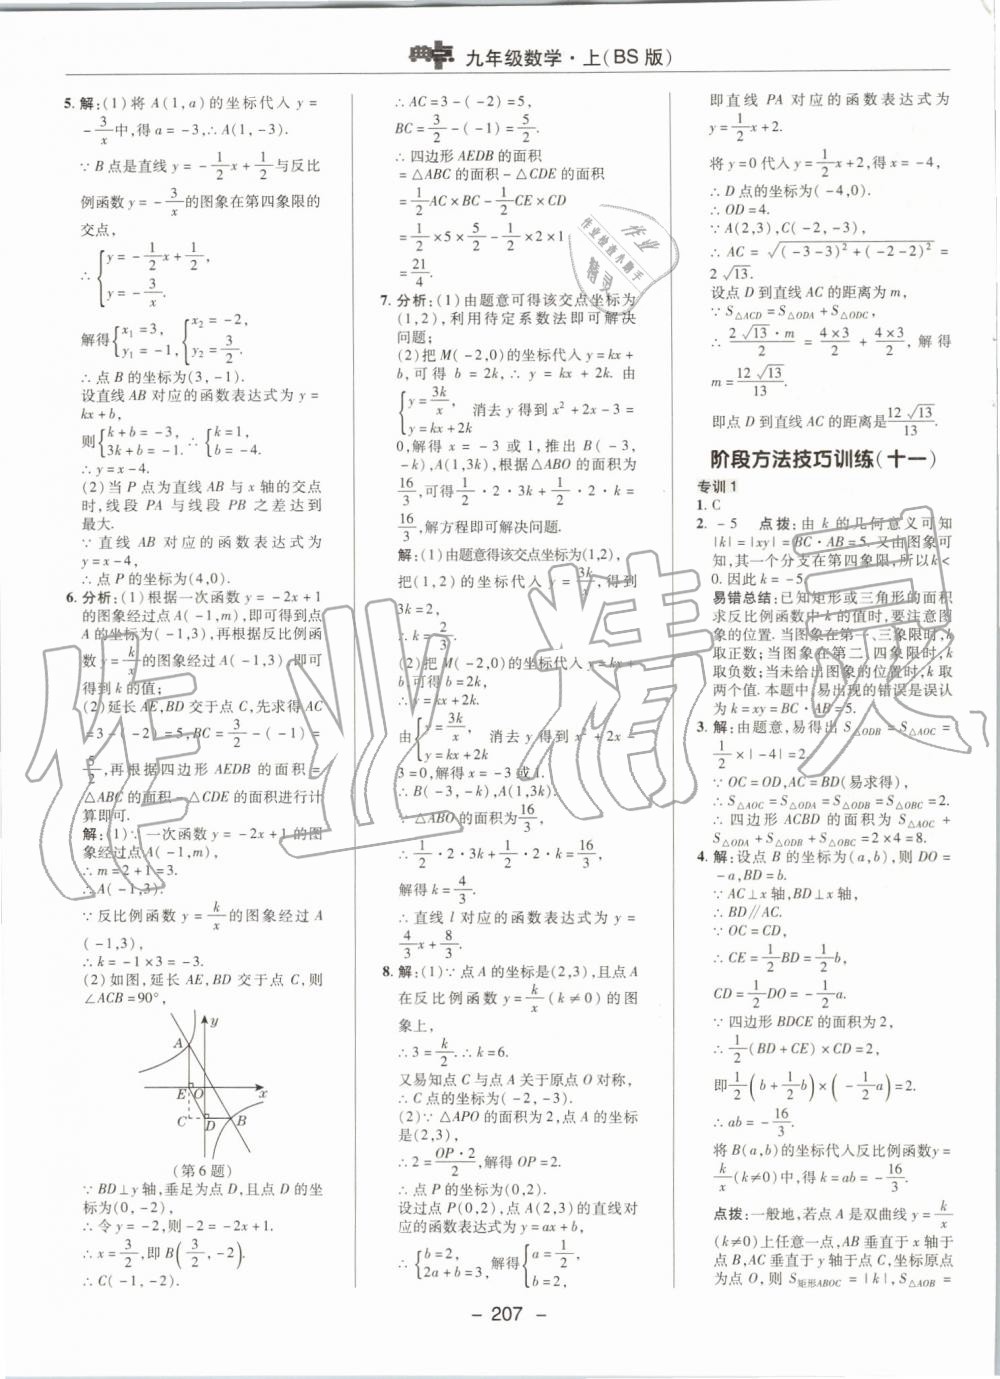 典中点 九年级数学·上(BS版)
5. 解:(1)将 A(1,a)的坐标代入 y=
-3/x中,得 a=-3,∴A(1,-3).
∵B 点是直线 y=-1/2x+1/2与反比
例函数 y=-3/x的图象在第四象限的
交点,
∴{y=-1/2x+1/2,
y=-3/x.
解得{x₁=3, y₁=-1, {x₂=-2, y₂=3/2.
∴点 B 的坐标为(3,-1).
设直线 AB 对应的函数表达式为 y=
kx+b,
则{k+b=-3, 3k+b=-1. ∴{k=1, b=-4.
(2)当 P 点为直线 AB 与 x 轴的交点
时,线段 PA 与线段 PB 之差达到
最大.
∵直线 AB 对应的函数表达式为
y=x-4,
∴点 P 的坐标为(4,0).
6. 分析:(1)根据一次函数 y=-2x+1
的图象经过点 A(-1,m),即可得到点
A 的坐标为(-1,3),再根据反比例函
数 y=k/x的图象经过 A(-1,3),即可
得到 k 的值;
(2)延长 AE,BD 交于点 C,先求得 AC
=3-(-2)=5,BC=3/2-(-1)=
5/2,再根据四边形 AEDB 的面积=
△ABC 的面积-△CDE 的面积进行计
算即可.
解:(1)∵一次函数 y=-2x+1 的图
象经过点 A(-1,m),
∴m=2+1=3.
∴A(-1,3).
∵反比例函数 y=k/x的图象经过 A
(-1,3),
∴k=-1×3=-3.
(2)如图,延长 AE,BD 交于点 C,则
∠ACB=90°,
y
A
E O x
C D B
(第6题)
∵BD⊥y 轴,垂足为点 D,且点 D 的坐
标为(0,-2),
∴令 y=-2,则-2=-2x+1.
∴x=3/2,即 B(3/2,-2).
∴C(-1,-2).
∴AC=3-(-2)=5,
BC=3/2-(-1)=5/2.
∴四边形 AEDB 的面积
=△ABC 的面积-△CDE 的面积
=1/2AC×BC-1/2CE×CD
=1/2×5×5/2-1/2×2×1
=21/4.
7. 分析:(1)由题意可得该交点坐标为
(1,2),利用待定系数法即可解决
问题;
(2)把 M(-2,0)的坐标代入 y=kx+
b,可得 b=2k,∴y=kx+2k. 由
{y=3k/x, y=kx+2k 消去 y 得到 x²+2x-3=
0,解得 x=-3 或 1,推出 B(-3,
-k),A(1,3k),根据△ABO 的面积为
16/3,可得1/2·2·3k+1/2·2·k=
16/3,解方程即可解决问题.
解:(1)由题意得该交点坐标为(1,2),
把(1,2)的坐标代入 y=3k/x,得到
3k=2,
∴k=2/3.
(2)把 M(-2,0)的坐标代入 y=kx+b,
可得 b=2k,
由{y=3k/x, y=kx+2k 消去 y 得到 x²+2x-
3=0,解得 x=-3 或 1,
∴B(-3,-k),A(1,3k).
∵△ABO 的面积为16/3,
∴1/2·2·3k+1/2·2·k=16/3,
解得 k=4/3.
∴直线 l 对应的函数表达式为 y=
4/3x+8/3.
8. 解:(1)∵点 A 的坐标是(2,3),且点 A
在反比例函数 y=k/x(k≠0)的图
象上,
∴3=k/2.∴k=6.
又易知点 C 与点 A 关于原点 O 对称,
∴C 点的坐标为(-2,-3).
(2)∵△APO 的面积为2,点 A 的坐标
是(2,3),
∴2=OP·2/2,解得 OP=2.
∴点 P 的坐标为(0,2).
设过点 P(0,2),点 A(2,3)的直线对
应的函数表达式为 y=ax+b,
∴{b=2, 2a+b=3, 解得{a=1/2, b=2,
即直线 PA 对应的函数表达式为
y=1/2x+2.
将 y=0 代入 y=1/2x+2,得 x=-4,
∴D 点的坐标为(-4,0).
∴OD=4.
∵A(2,3),C(-2,-3),
∴AC=√((-3-3)²+(-2-2)²)=
2√13.
设点 D 到直线 AC 的距离为 m,
∵S△ACD=S△ODA+S△ODC,
∴2√13·m/2=4×3/2+4×3/2,解得
m=12√13/13.
即点 D 到直线 AC 的距离是12√13/13.
阶段方法技巧训练(十一)
专训1
1. C
2. -5 点拨:由 k 的几何意义可知
|k|=|xy|=BC·AB=5.又由图象可
知,其一个分支在第四象限,所以 k<
0.因此 k=-5.
易错总结:已知矩形或三角形的面积
求反比例函数中 k 的值时,要注意图
象的位置.当图象在第一、三象限时,k
取正数;当图象在第二、四象限时,k
取负数;当未给出图象的位置时,k 取
两个值.本题中,易出现的错误是误认
为 k=xy=BC·AB=5.
3. 解:由题意,易得出 S△ODB=S△AOC=
1/2×|-4|=2.
∵OC=OD,AC=BD(易求得),
∴S△AOC=S△ODA=S△ODB=S△OBC=2.
∴四边形 ACBD 的面积为 S△AOC+
S△ODA+S△ODB+S△OBC=2×4=8.
4. 解:设点 B 的坐标为(a,b),则 DO=
-a,BD=b.
∵AC⊥x 轴,BD⊥x 轴,
∴BD∥AC.
∵OC=CD,
∴CE=1/2BD=1/2b,
CD=1/2DO=-1/2a.
∵四边形 BDCE 的面积为2,
∴1/2(BD+CE)×CD=2,
即1/2(b+1/2b)×(-1/2a)=2.
∴ab=-16/3.
将 B(a,b)的坐标代入反比例函数 y=
k/x(k≠0)中,得 k=ab=-16/3.
点拨:一般地,若点 A 是双曲线 y=k/x
(k≠0)上任意一点,AB 垂直于 x 轴于
点 B,AC 垂直于 y 轴于点 C,坐标原点
为点 O,则 S矩形ABOC=|k|,S△AOB=
- 207 -
作业
作业检查小助手
精灵
作业精灵